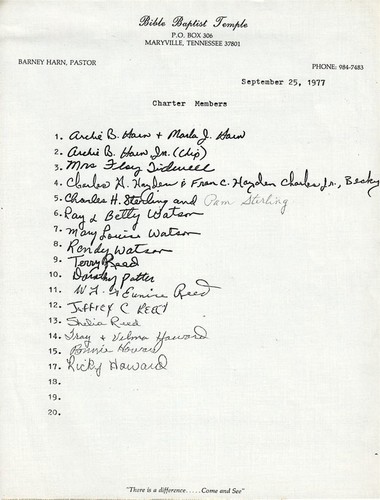 Bible Baptist Temple
P.O. BOX 306
MARYVILLE, TENNESSEE 37801
BARNEY HARN, PASTOR PHONE: 984-7483
September 25, 1977
Charter Members
1. Archie B. Harn & Marla J. Harn
2. Archie B. Harn Jr. (Chip)
3. Mrs Flay Tidwell
4. Charles H. Hayden & Fran C. Hayden Charles, Jr., Becky
5. Charles H. Sterling and Pam Sterling
6. Ray & Betty Watson
7. May Louise Watson
8. Randy Watson
9. Terry Reed
10. Dorothy Patter
11. W L & Eunice Reed
12. Jeffrey C Reed
13. Shelia Reed
14. Troy & Velma Howard
15. Bonnie Howard
17. Ricky Howard
18.
19.
20.
"There is a difference.....Come and See"